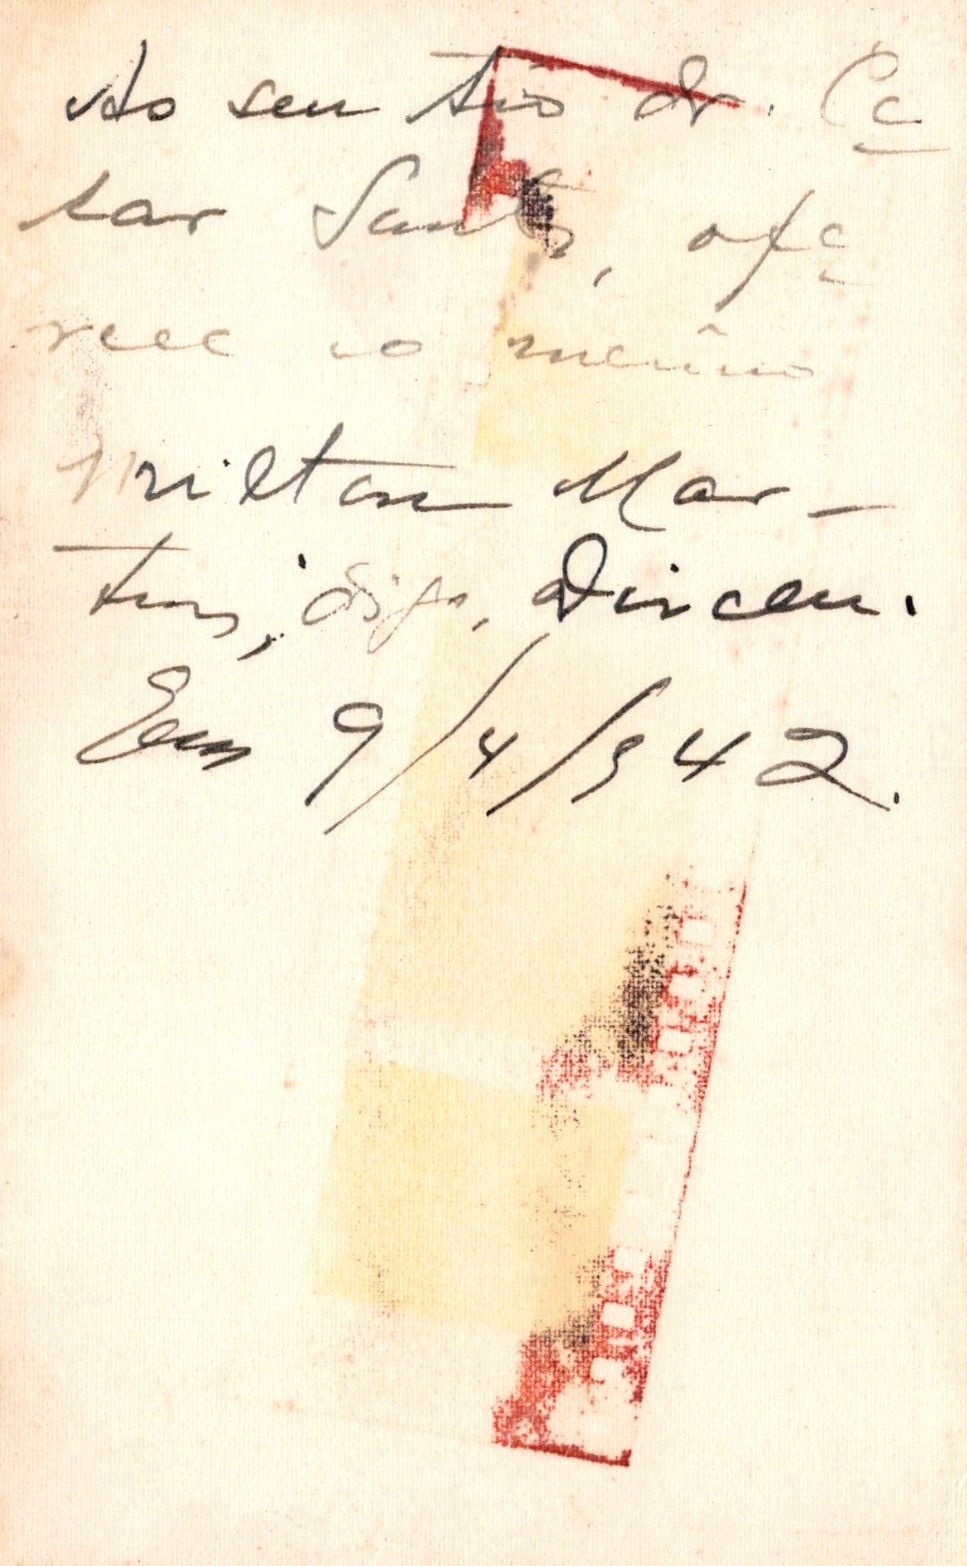 Ao seu tio dr. Ce
sar Santos, ofe
rece o menino
Milton Mar-
tins, digo, Dirceu.
Em 9/4/942.